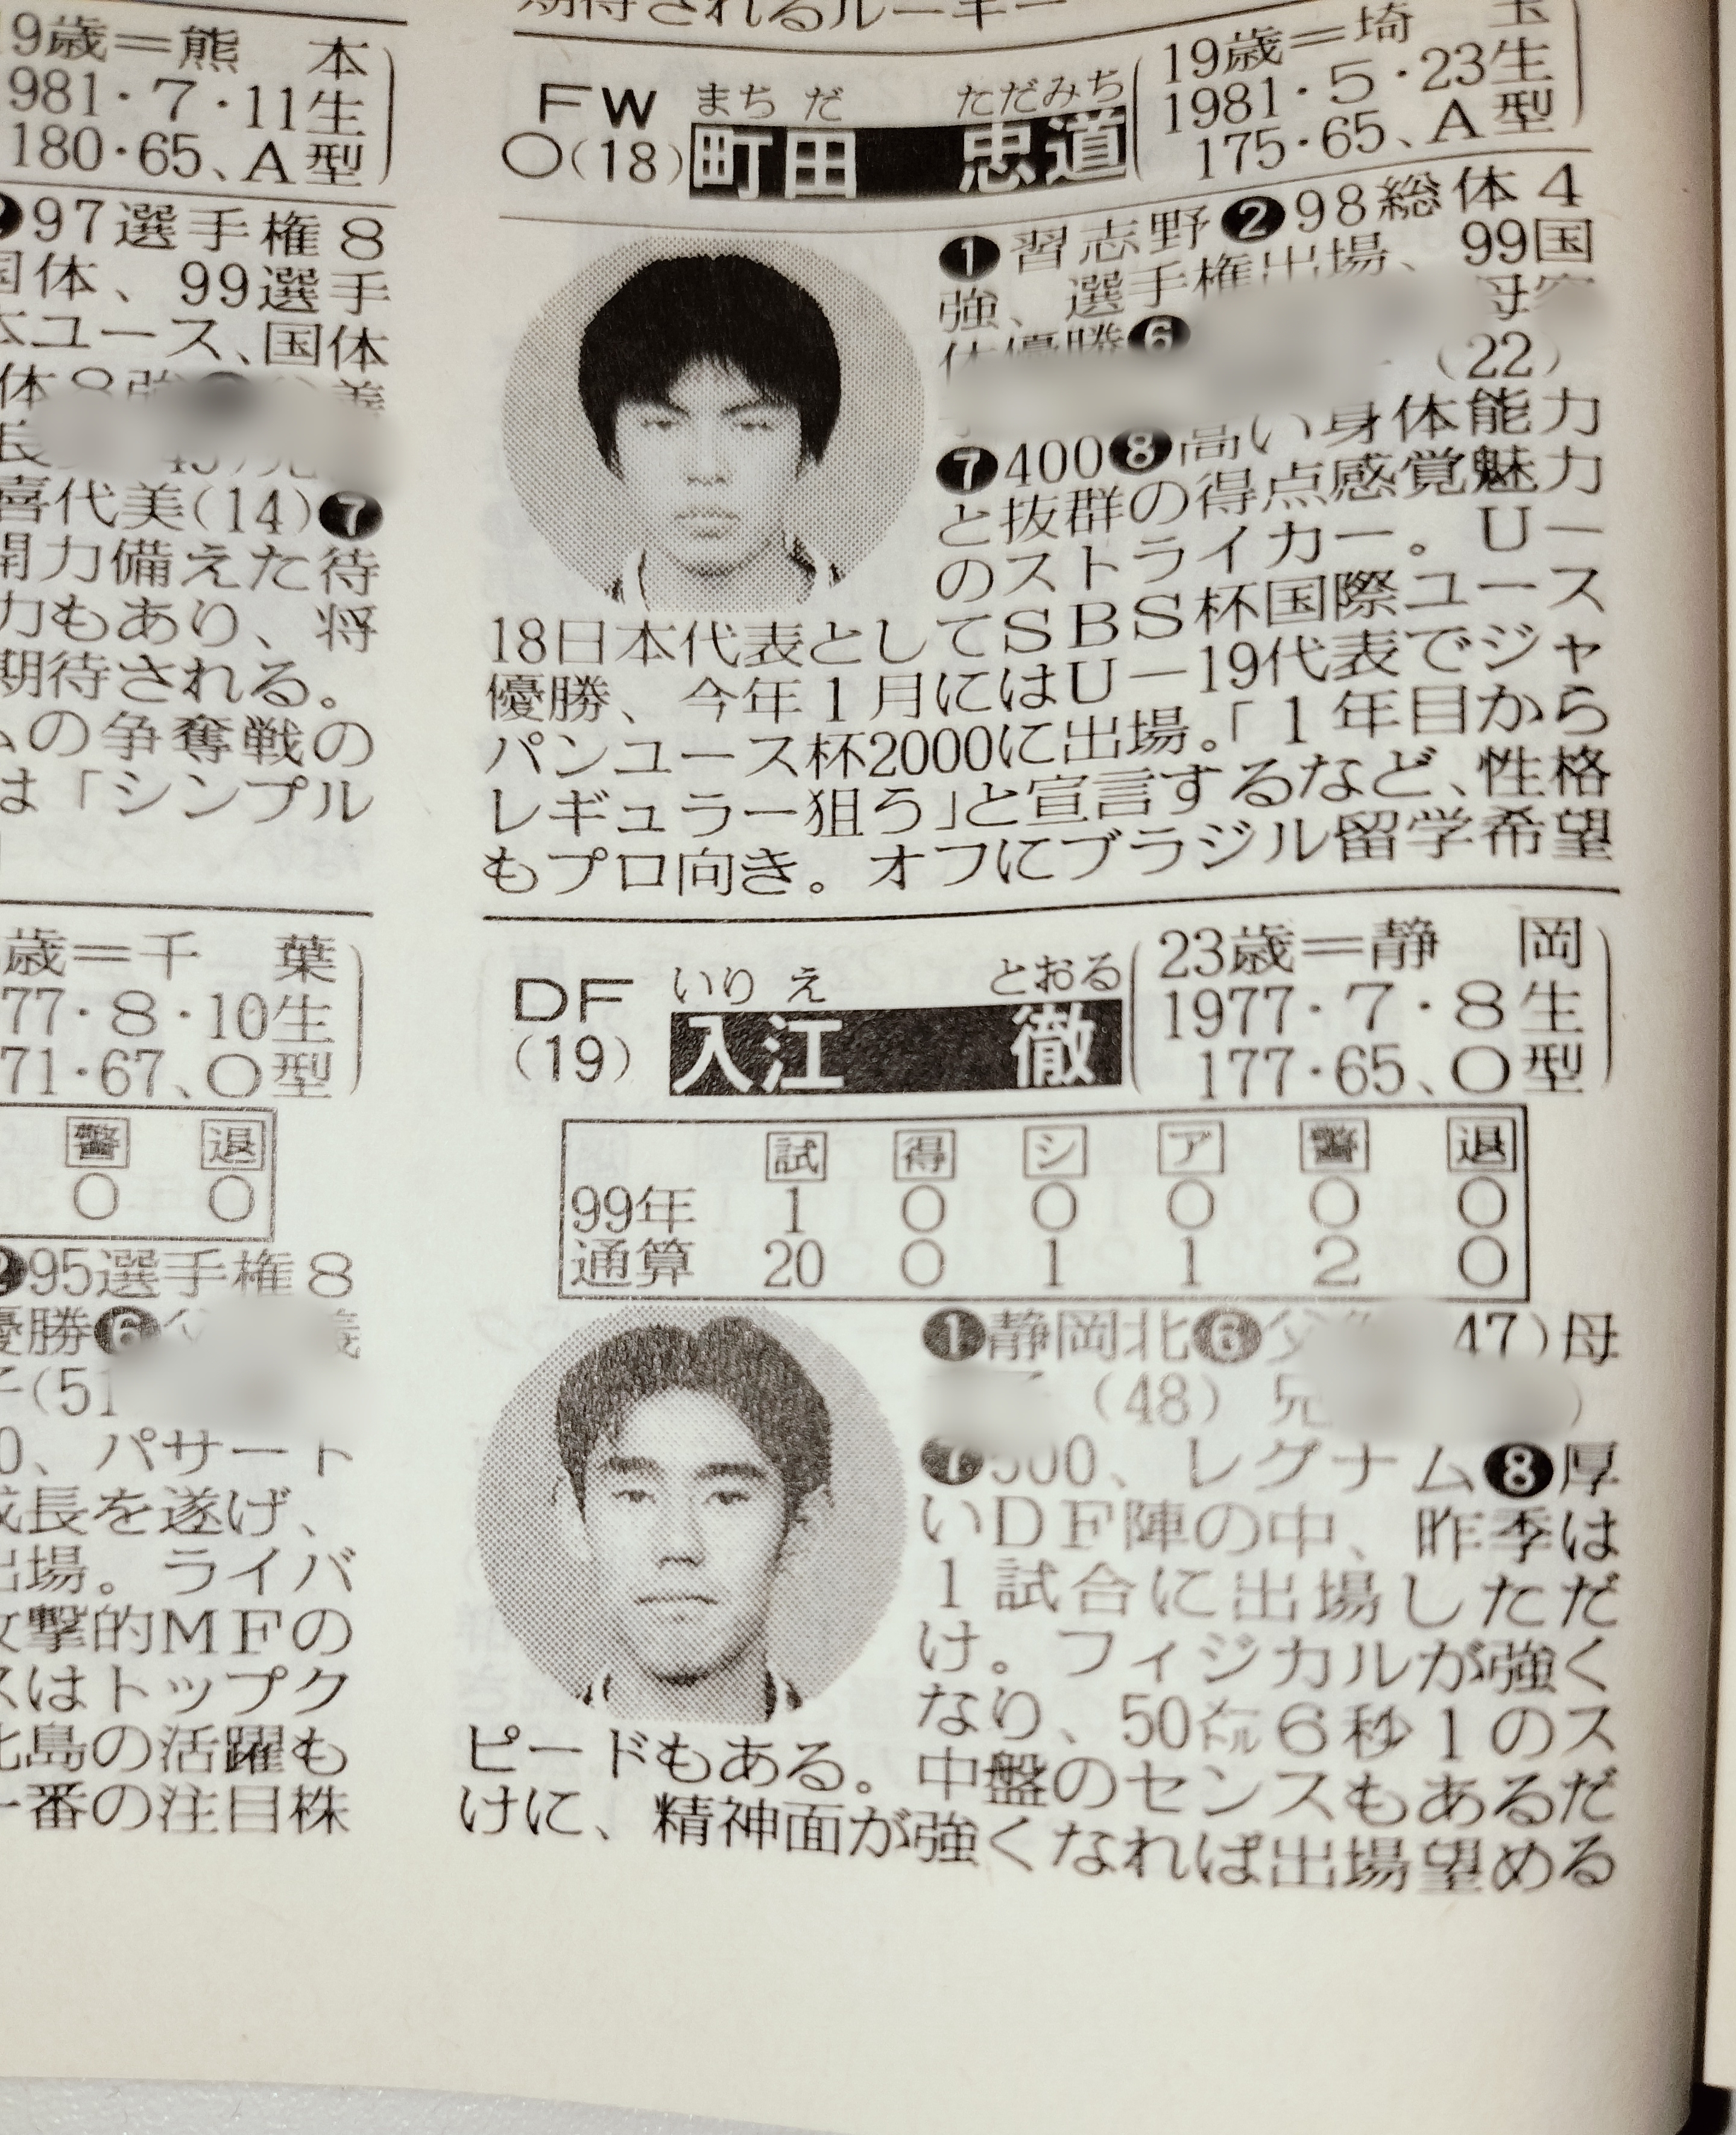 9歳＝熊　本
981・7・11生
180・65、A型
97選手権8
国体、99選手
本ユース、国体
喜代美(14)❼
開力備えた待
力もあり、将
期待される。
ムの争奪戦の
は「シンプル
歳＝千　葉
77・8・10生
71・67、O型
警　退
0　0
❷95選手権8
優勝❻
(51
0、パサート
成長を遂げ、
出場。ライバ
攻撃的MFの
スはトップク
北島の活躍も
一番の注目株
期待されるルーキー
FW
○(18)
まちだ　ただみち
町田　忠道
19歳＝埼　玉
1981・5・23生
175・65、A型
❶習志野❷98総体4
強、選手権出場、99国
体優勝❻　母
(22)
❼400❽高い身体能力
と抜群の得点感覚魅力
のストライカー。U－
18日本代表としてSBS杯国際ユース
優勝、今年1月にはU－19代表でジャ
パンユース杯2000に出場。「1年目から
レギュラー狙う」と宣言するなど、性格
もプロ向き。オフにブラジル留学希望
DF
(19)
いりえ　とおる
入江　徹
23歳＝静　岡
1977・7・8生
177・65、O型
試　得　シ　ア　警　退
99年　1　0　0　0　0　0
通算　20　0　1　1　2　0
❶静岡北❻父　47)母
(48)　兄　)
❼500、レグナム❽厚
いDF陣の中、昨季は
1試合に出場しただ
け。フィジカルが強く
なり、50㍍6秒1のス
ピードもある。中盤のセンスもあるだ
けに、精神面が強くなれば出場望める